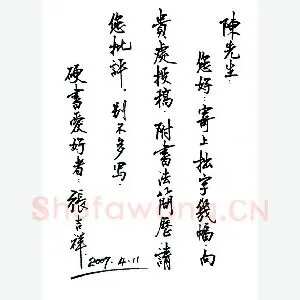 陳先生:
您好.寄上拙字幾幅.向
貴處投稿.附書法簡歷.請
您批評.别不多寫.
硬書愛好者:張吉祥.
2007.4.11
Shufawang.CN